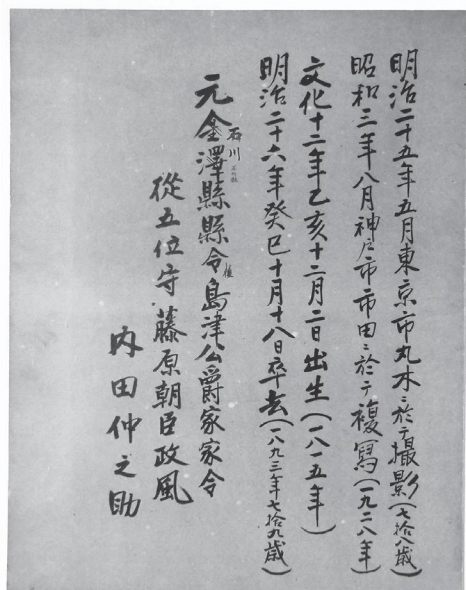 明治二十五年五月東京市丸木ニ於テ撮影(七拾八歳)
昭和三年八月神戸市市田ニ於テ複寫(一九二八年)
文化十二年乙亥十二月二日出生(一八一五年)
明治二十六年癸巳十月十八日卒去(一八九三年七拾九歳)
石川
元金澤縣縣令後島津公爵家家令
從五位守藤原朝臣政風
内田仲之助